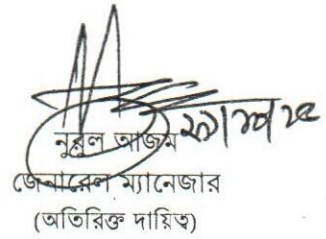 নুরুল আজম
জেনারেল ম্যানেজার
(অতিরিক্ত দায়িত্ব)